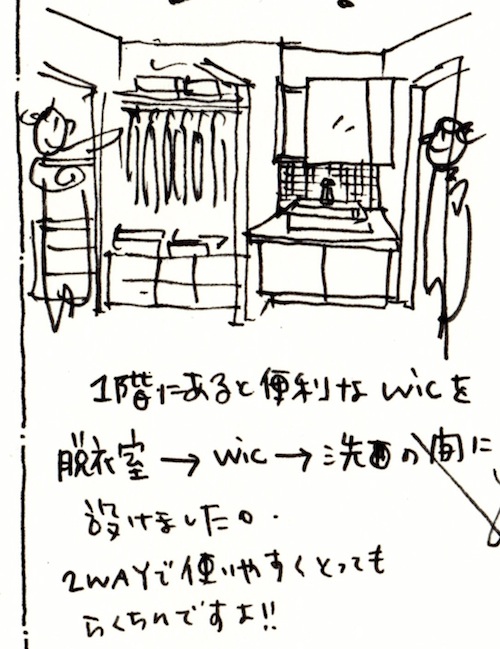 1階にあると便利な wicを
脱衣室 → wic → 洗面の間に
設けました。
2WAYで使いやすくとっても
らくちんですよ!!